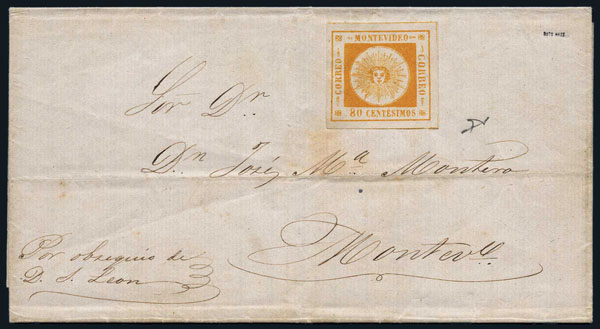 MONTEVIDEO
CORREO
CORREO
80 CENTESIMOS
Sor Dr.
Dn José Ma. Montero
Montevo.
Por obsequio de
D. S. Leon